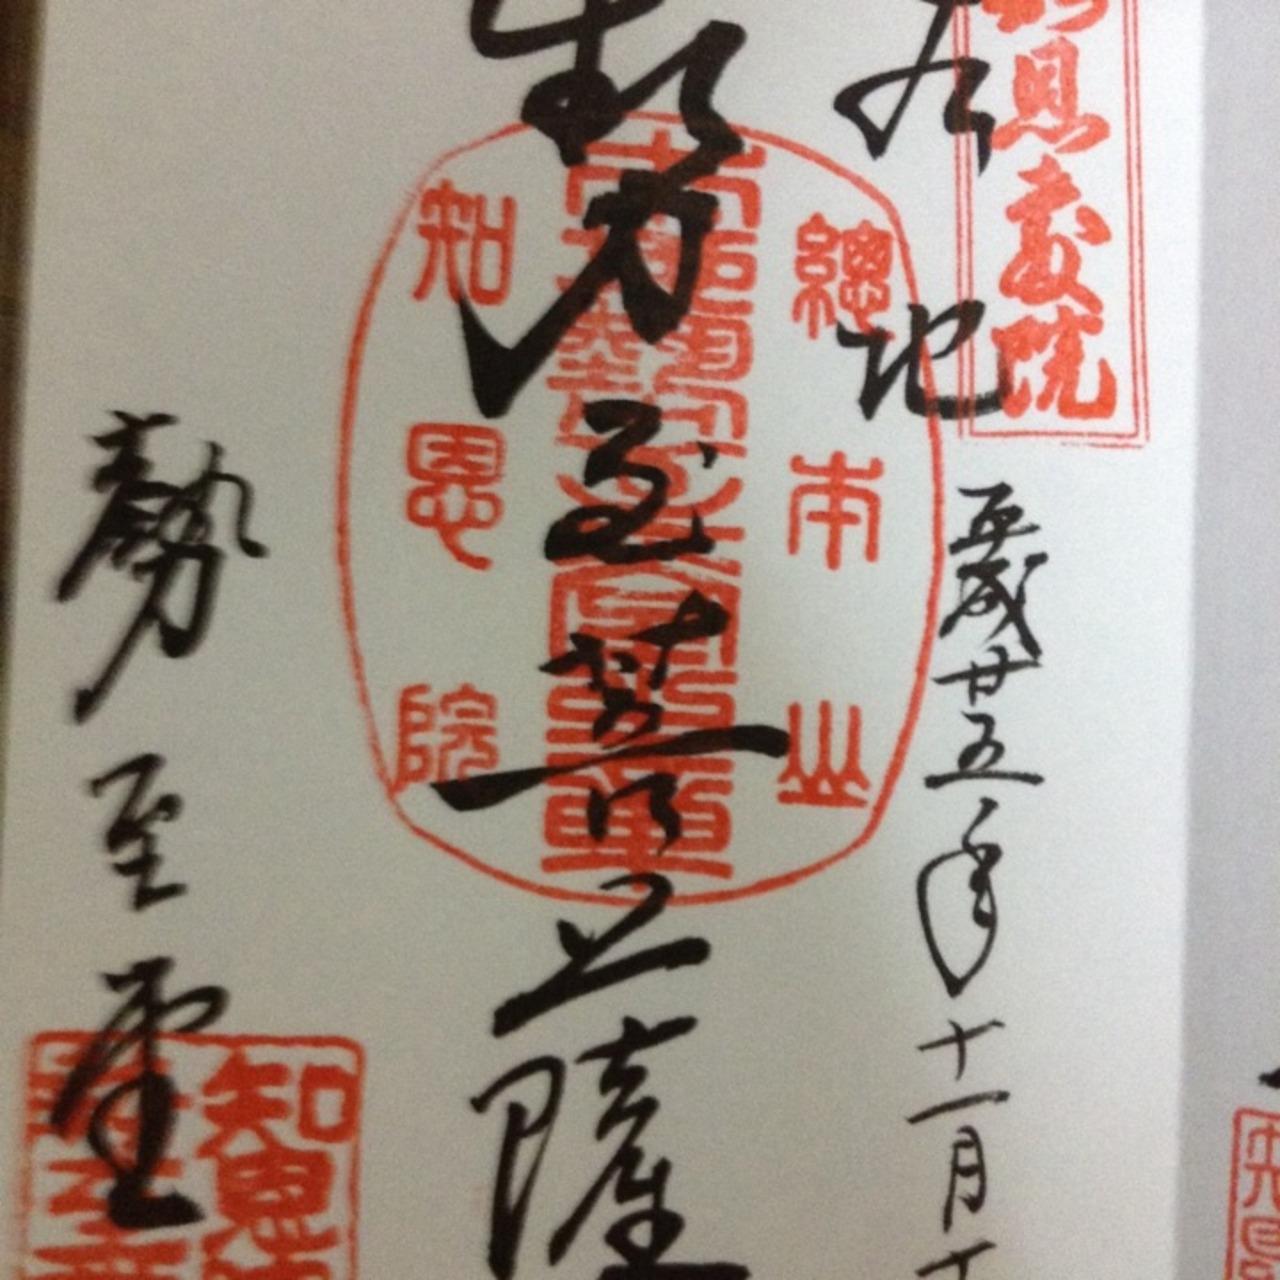 恩教院
地
平成廿五年十一月十
總本山
勢至菩薩
知恩院
勢至堂
知恩